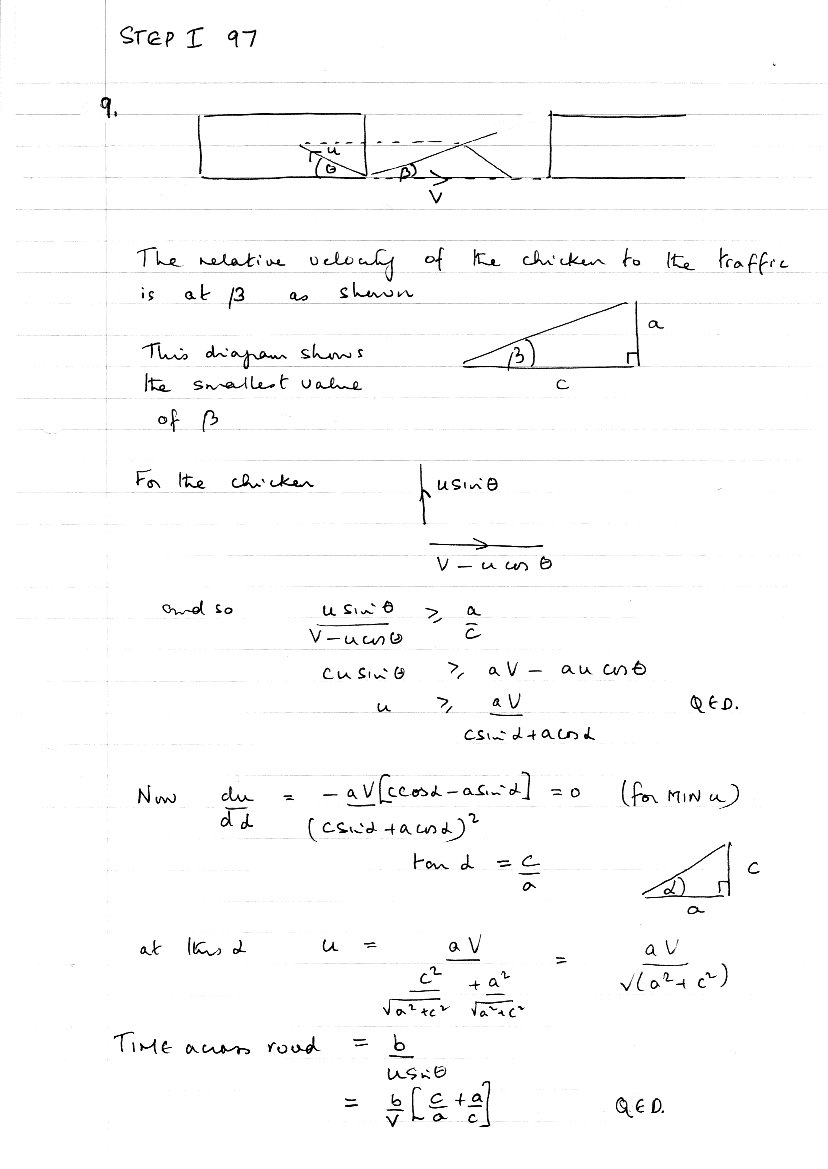 STEP I 97
9.
u
θ β
V
The relative velocity of the chicken to the traffic
is at β as shown
a
This diagram shows β
the smallest value c
of β
For the chicken u sin θ
V - u cos θ
and so u sin θ / (V - u cos θ) ⩾ a/c
c u sin θ ⩾ aV - au cos θ
u ⩾ aV / (c sin α + a cos α) QED.
Now du/dα = -aV[c cos α - a sin α] / (c sin α + a cos α)² = 0 (for MIN u)
tan α = c/a α c
a
at this α u = aV / (c²/√(a²+c²) + a²/√(a²+c²)) = aV / √(a²+c²)
TIME across road = b / (u sin θ)
= b/V [c/a + a/c] QED.